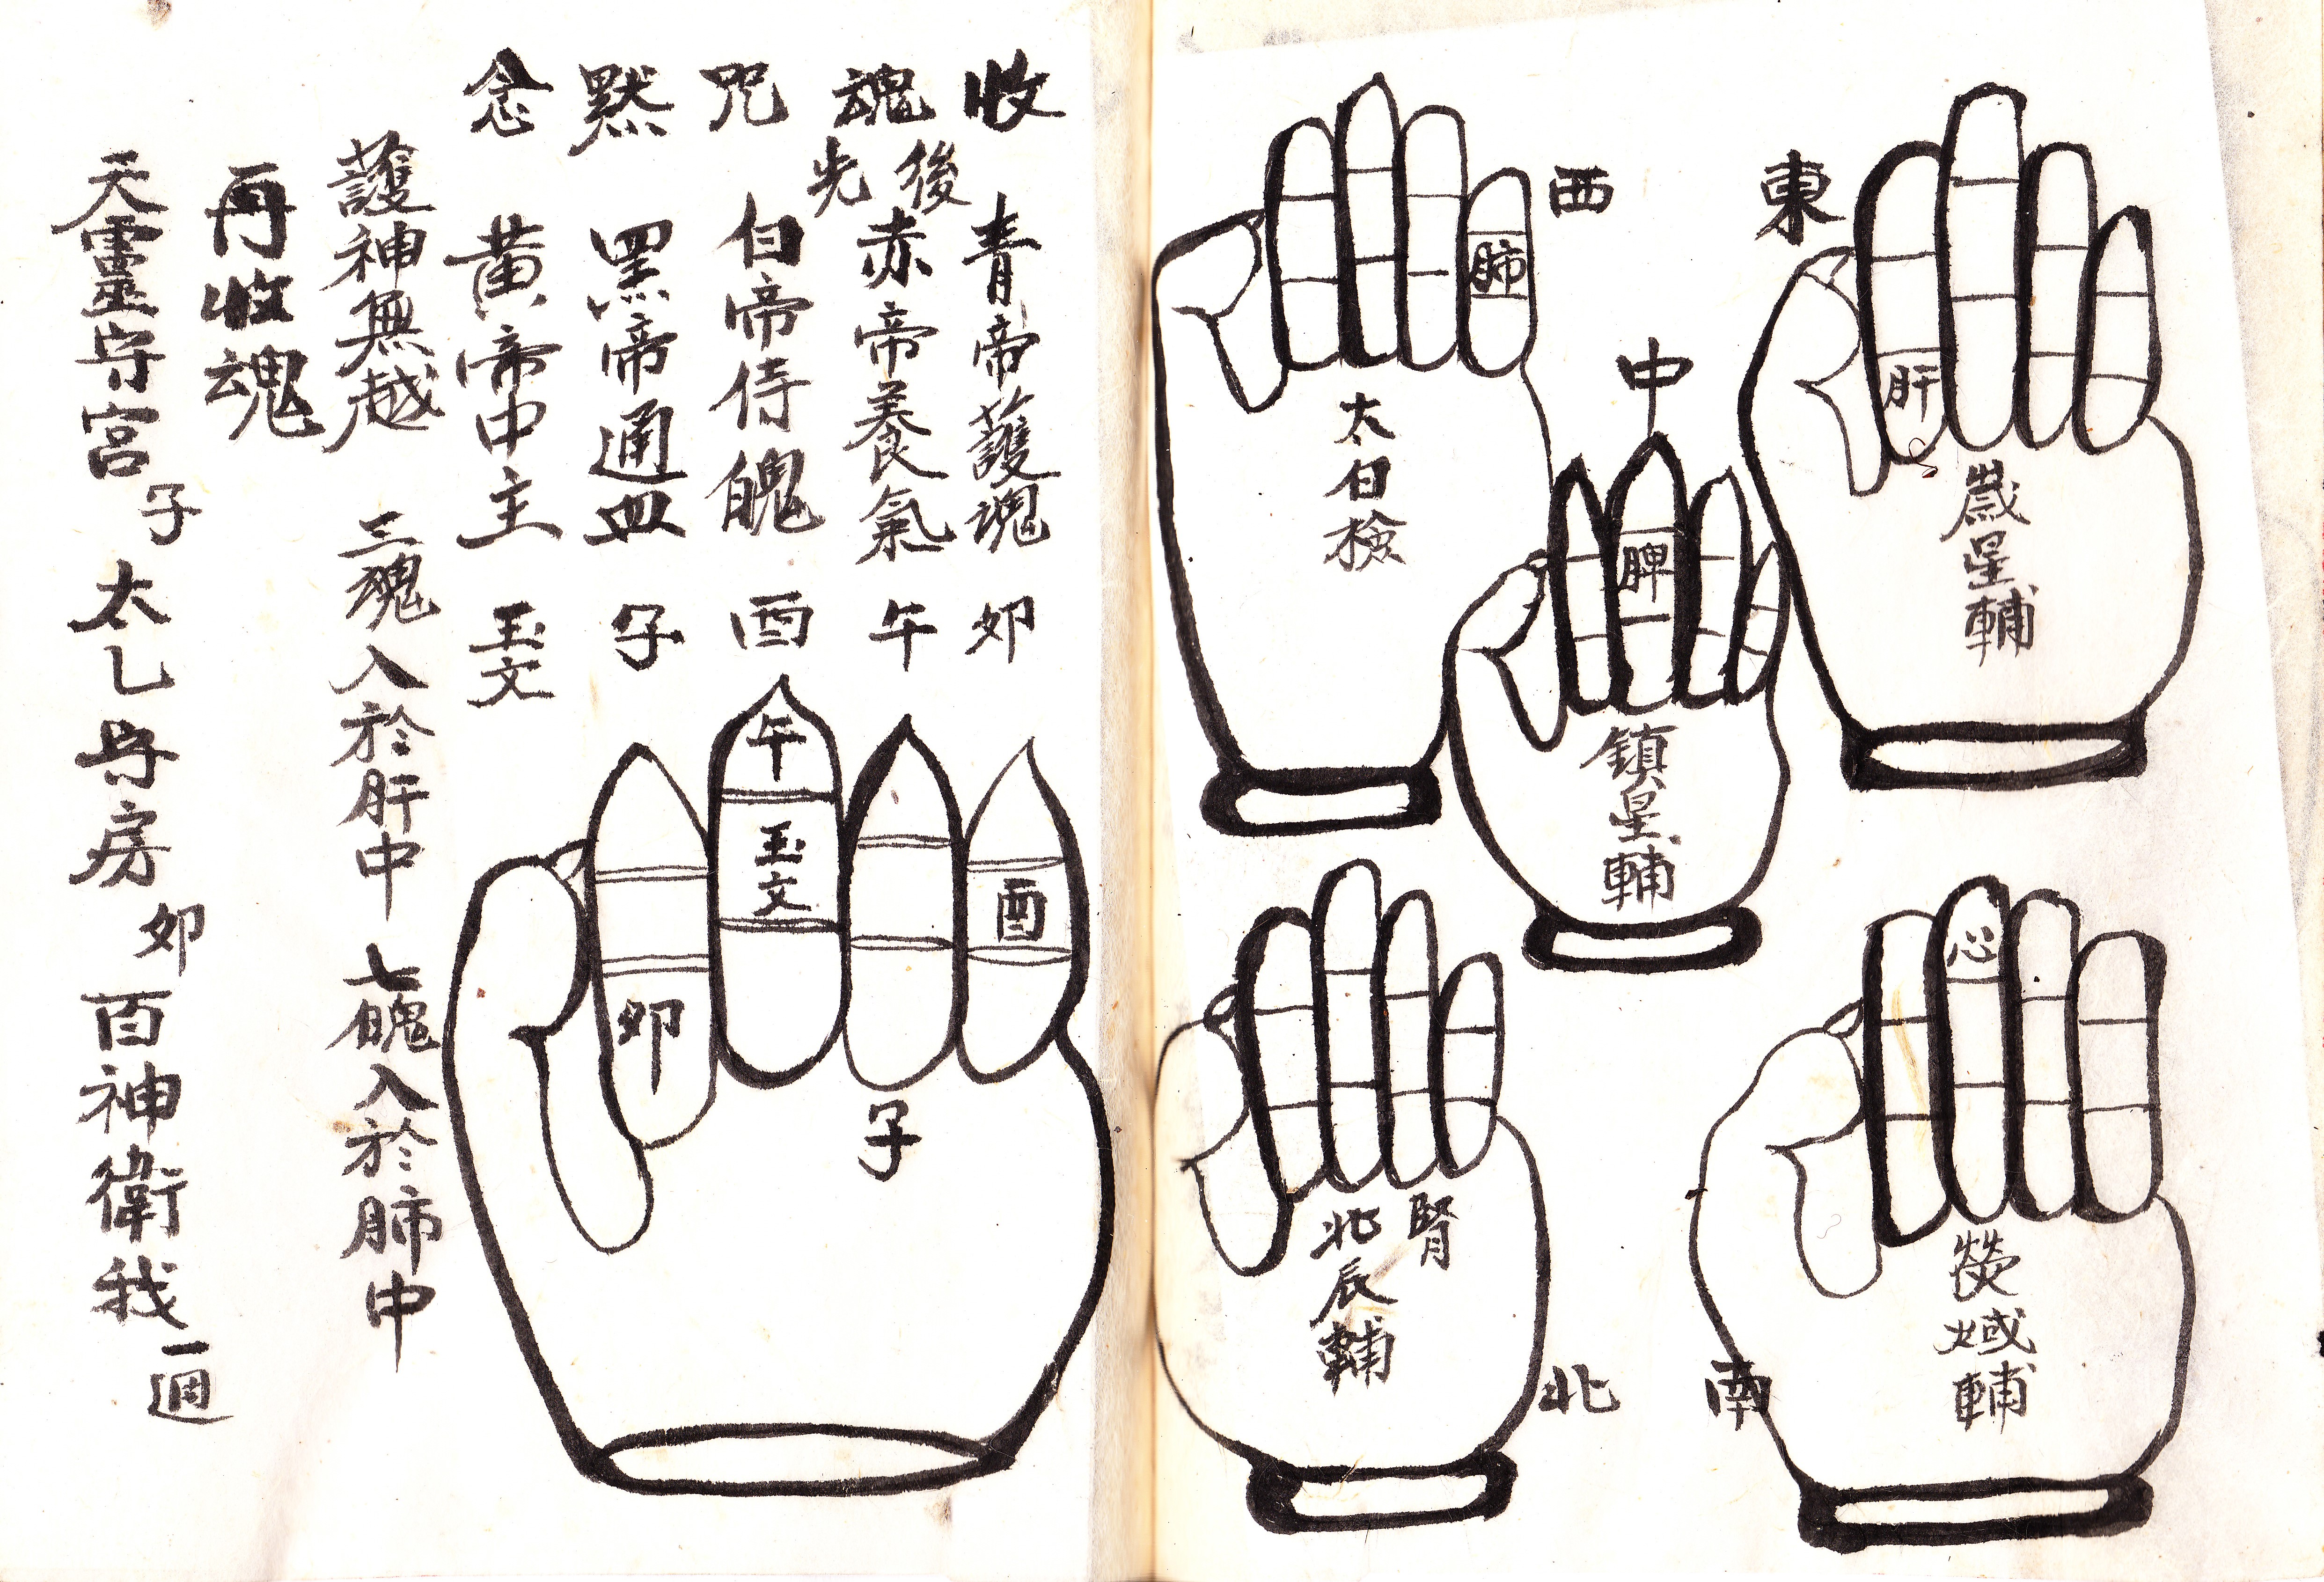 東
肝
歲星輔
西
肺
太白檢
中
脾
鎮星輔
南
心
熒輔
北
腎
北辰輔
收魂咒默念
後
先
青帝護魂 卯
赤帝養氣 午
白帝侍魄 酉
黑帝通血 子
黃帝中主 玉文
護神無越 三魂入於肝中 七魄入於肺中
再收魂
天靈守宮 子 太乙守房 卯 百神衛我 一週
酉
子
午
玉文
卯